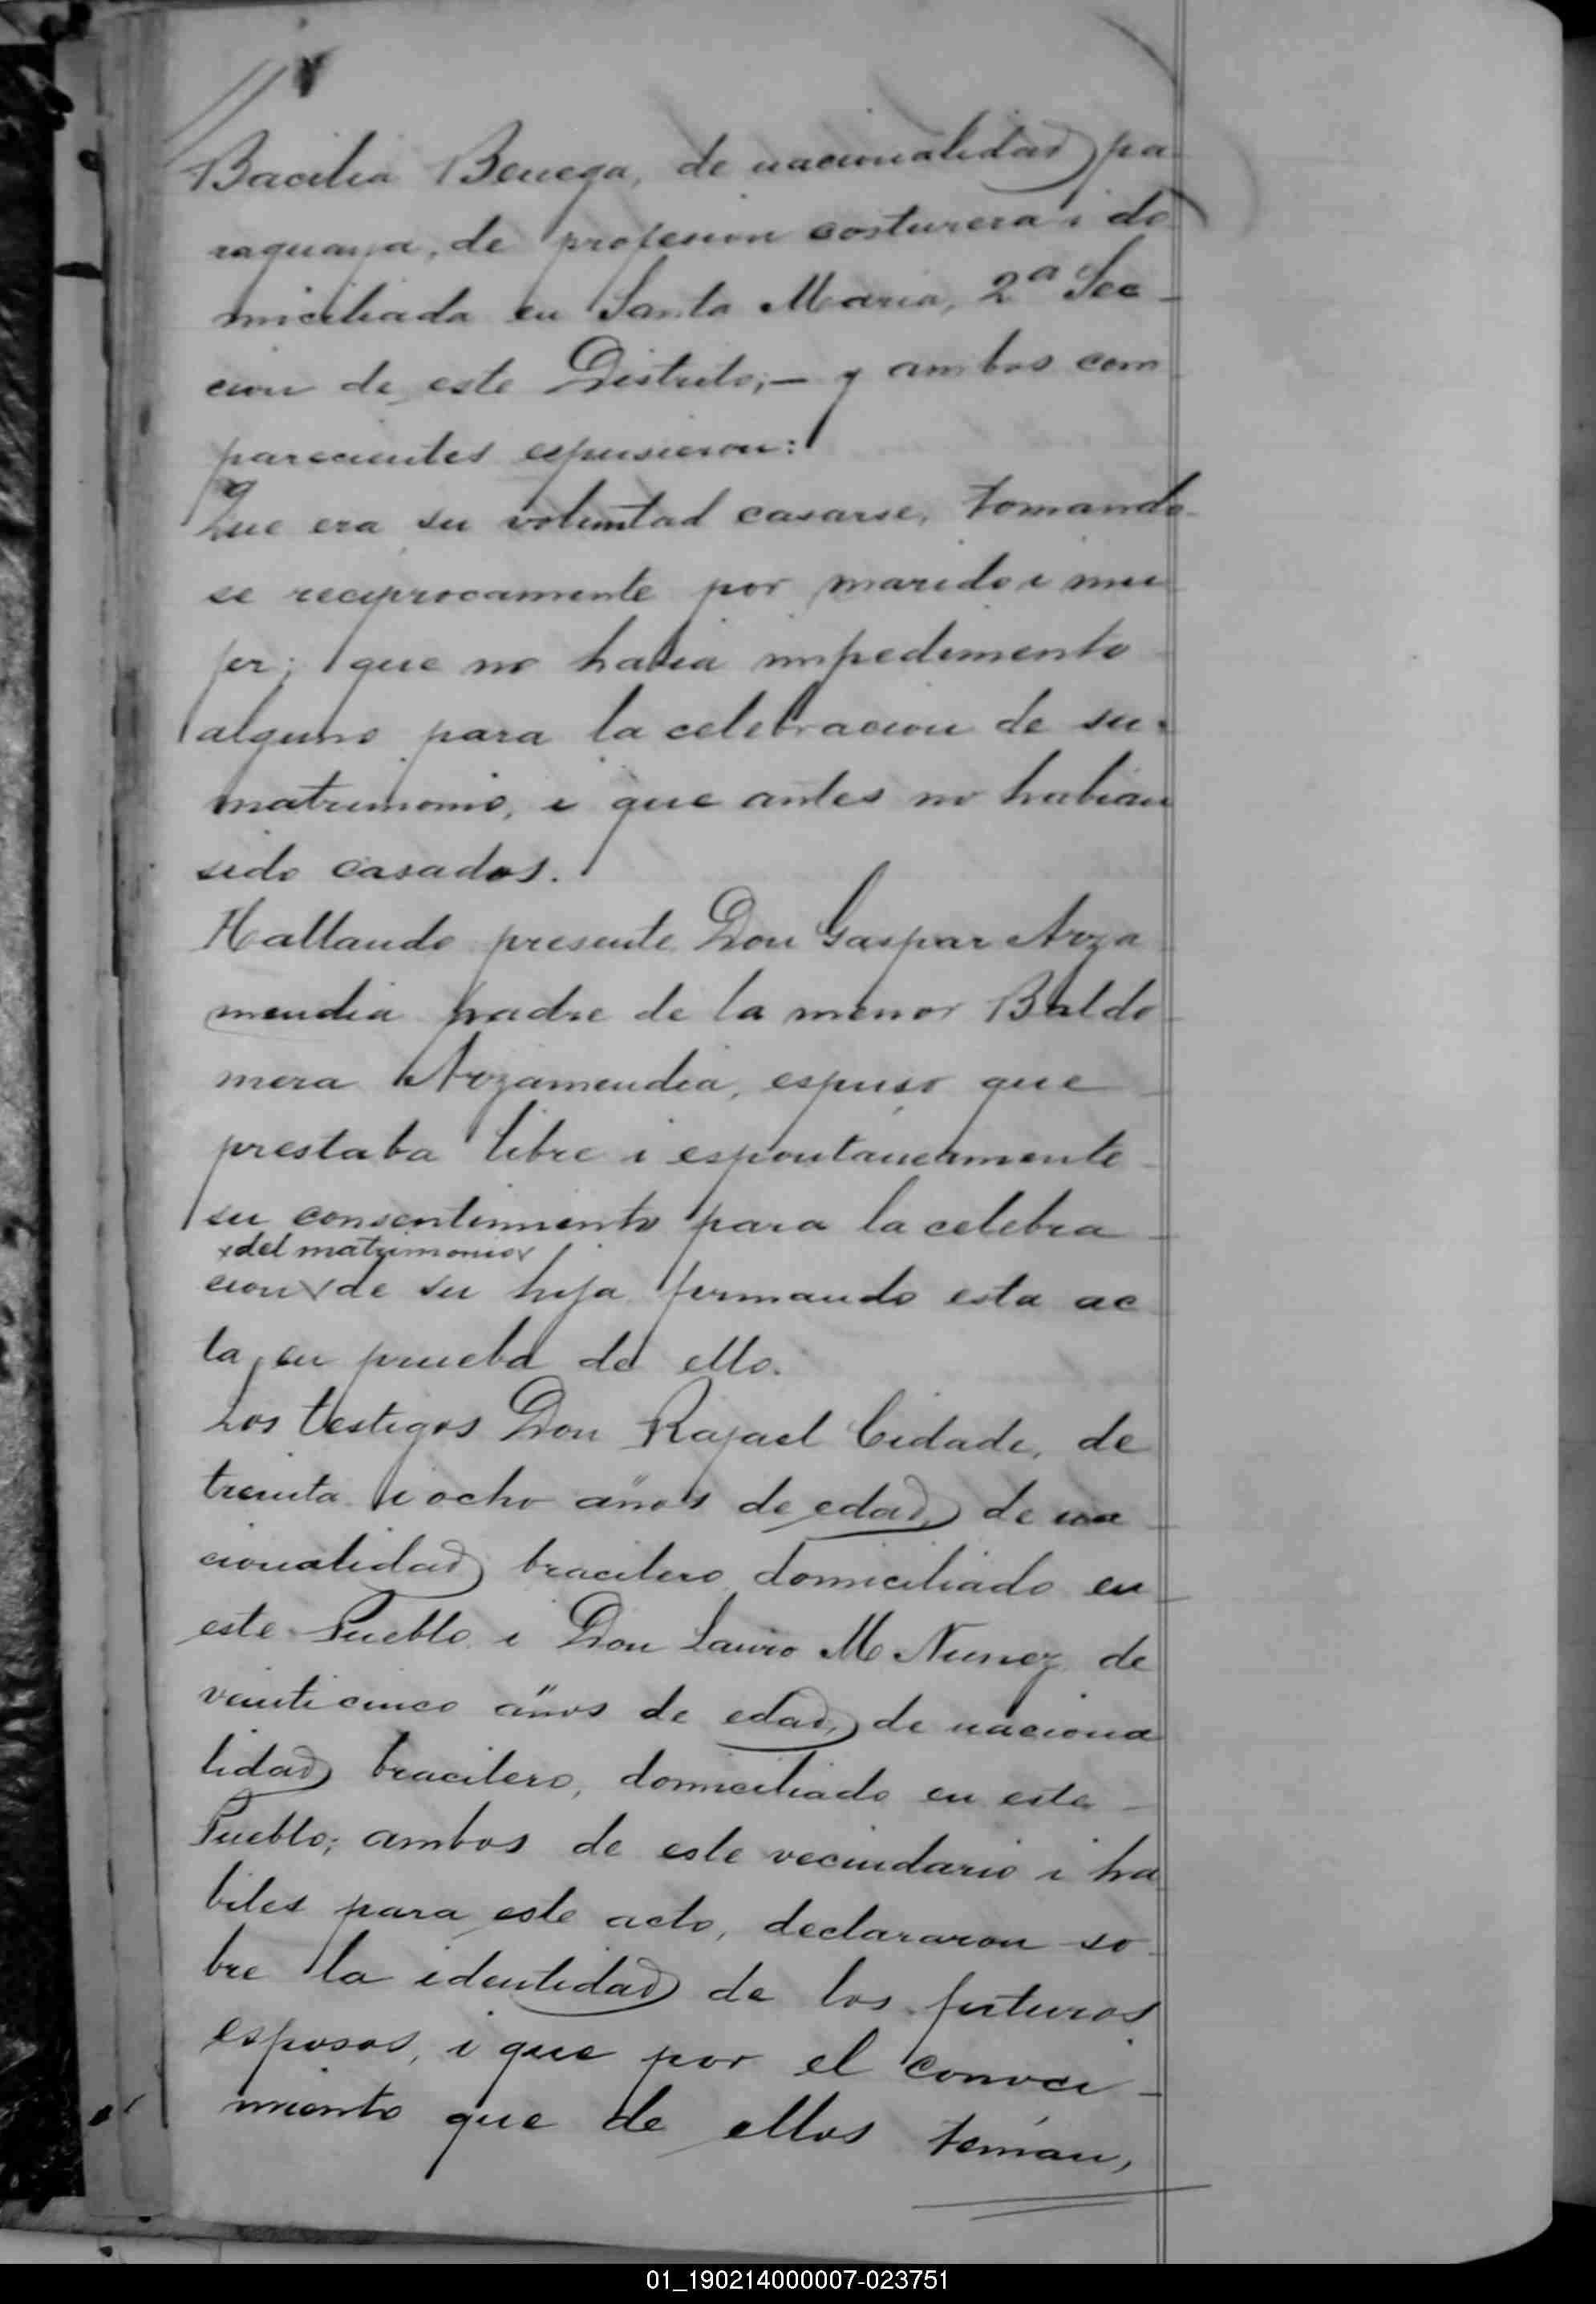 Bacilia Benega, de nacionalidad pa
raguaya, de profesion costurera i do
miciliada en Santa Maria, 2ª Sec
cion de este Distrito; — y ambos com
parecientes espusieron:
Que era su voluntad casarse, tomando
se reciprocamente por marido i mu
jer; que no habia impedimento
alguno para la celebracion de su
matrimonio, i que antes no habian
sido casados.
Hallando presente Don Gaspar Arza
mendia padre de la menor Baldo
mera Arzamendia, espuso que
prestaba libre i espontaneamente
su consentimiento para la celebra
del matrimonio
cion de su hija firmando esta ac
ta, en prueba de ello.
Los testigos Don Rafael Cidade, de
treinta i ocho años de edad, de na
cionalidad bracilero domiciliado en
este Pueblo i Don Lauro M Nunez de
veinticinco años de edad, de naciona
lidad bracilero, domiciliado en este
Pueblo; ambos de este vecindario i ha
biles para este acto, declararon so
bre la identidad de los futuros
esposos, i que por el conoci
miento que de ellos tenían,
01_190214000007-023751